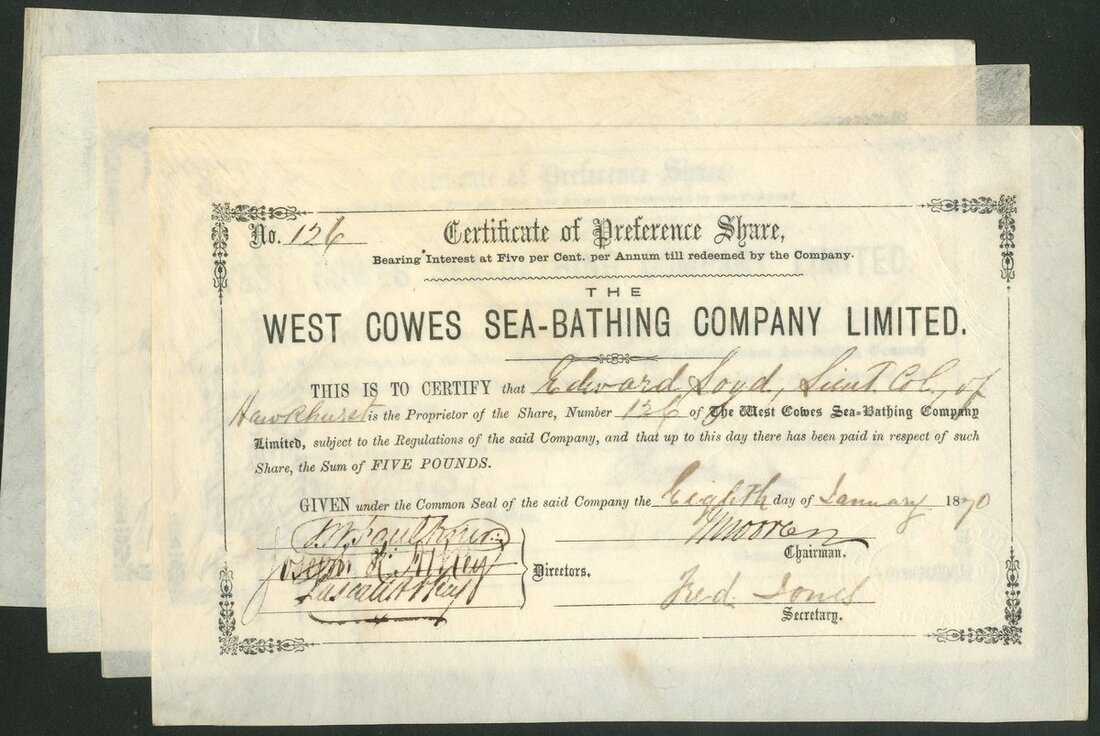 No. 126
Certificate of Preference Share,
Bearing Interest at Five per Cent. per Annum till redeemed by the Company.
THE
WEST COWES SEA-BATHING COMPANY LIMITED.
THIS IS TO CERTIFY that Edward Loyd, Lieut. Col., of
Hawkhurst is the Proprietor of the Share, Number 126 of The West Cowes Sea-Bathing Company
Limited, subject to the Regulations of the said Company, and that up to this day there has been paid in respect of such
Share, the Sum of FIVE POUNDS.
GIVEN under the Common Seal of the said Company the Eighth day of January 1870
Chairman.
Directors.
Fred. Jones
Secretary.